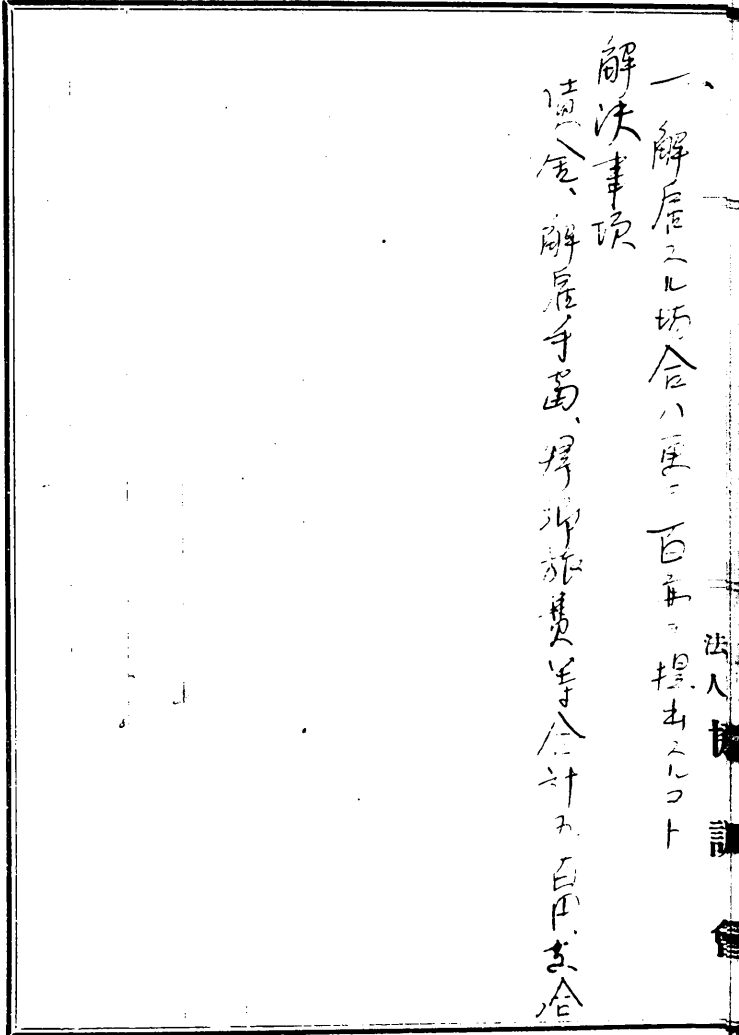 一、解雇スル場合ハ更ニ百円ヲ提出スルコト
解決事項
賃金、解雇手当、帰郷旅費等合計五百円支給
法人協調會